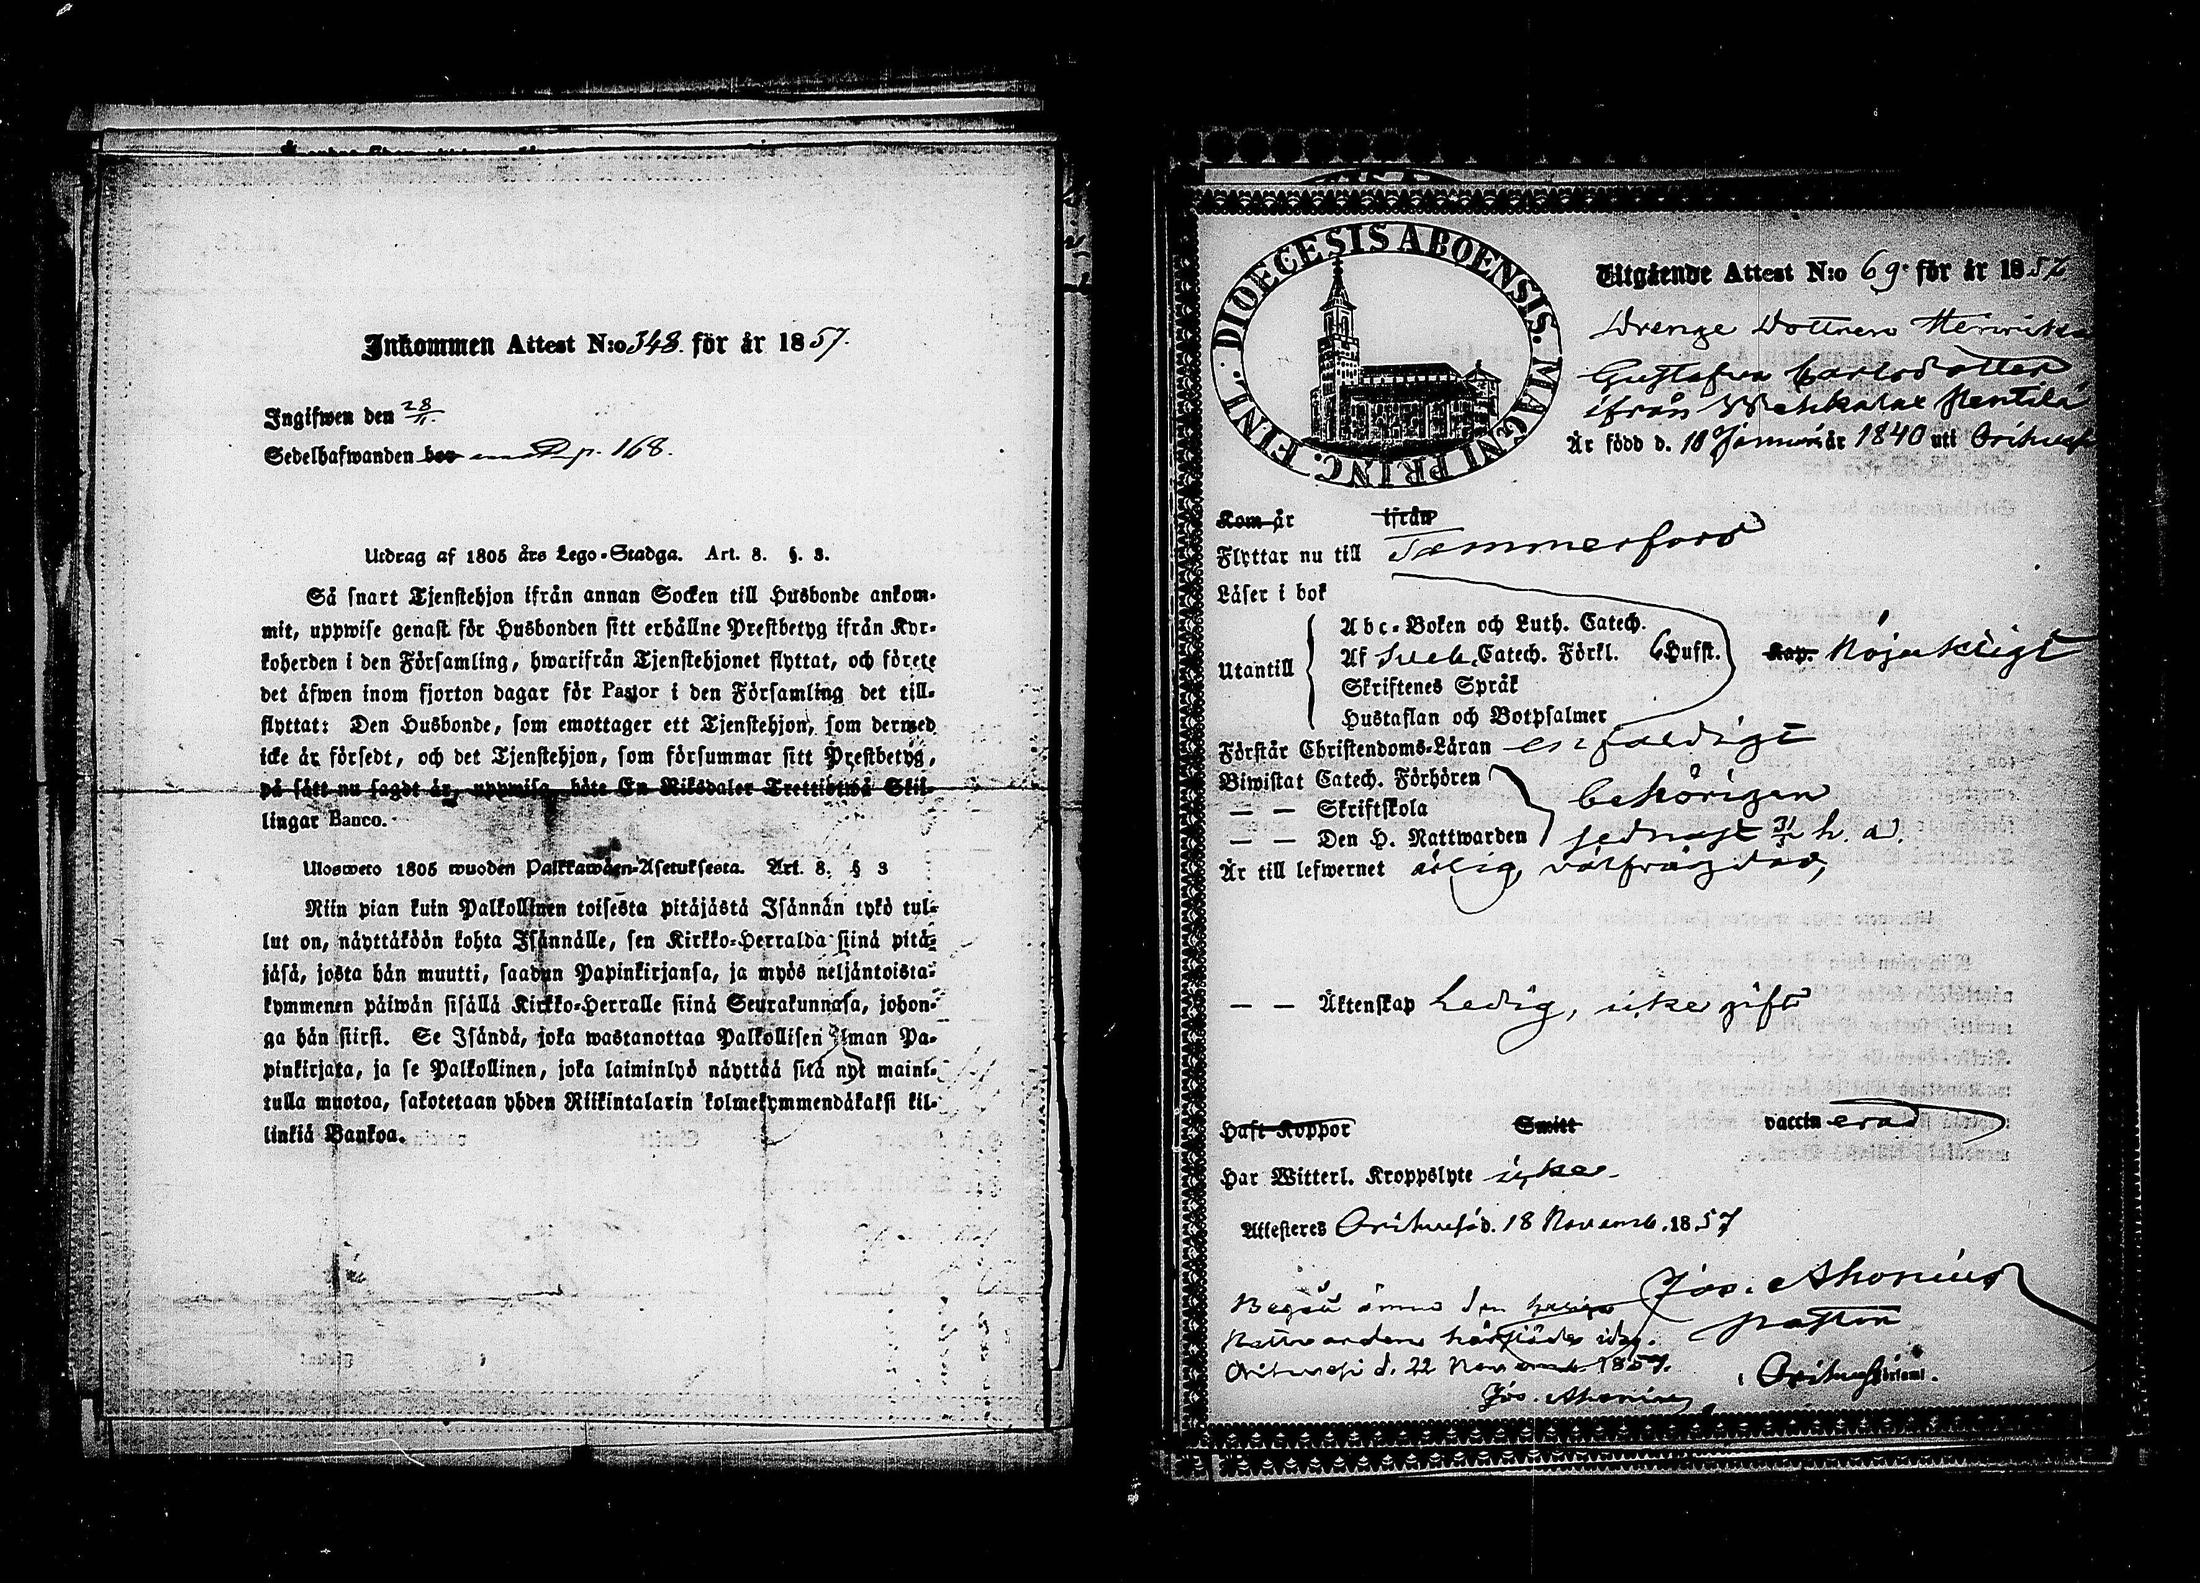 Inkommen Attest N:o 348. för år 1857.
Ingifwen den 28/11.
Sedelhafwanden bor p. 168.
Utdrag af 1805 års Lego-Stadga. Art. 8. §. 3.
Så snart Tjenstehjon ifrån annan Socken till Husbonde ankom-
mit, uppwise genast för Husbonden sitt erhållne Prestbetyg ifrån Kyr-
koherden i den Församling, hwarifrån Tjenstehjonet flyttat, och förete
det äfwen inom fjorton dagar för Pastor i den Församling det till-
flyttat: Den Husbonde, som emottager ett Tjenstehjon, som dermed
icke är försedt, och det Tjenstehjon, som försummar sitt Prestbetyg,
på sätt nu sagdt är, uppwisa, böte En Riksdaler Trettiotwå Skil-
lingar Banco.
Ulosweto 1805 wuoden Palkkawäen-Asetuksesta. Art. 8. § 3
Niin pian kuin Palkollinen toisesta pitäjästä Isännän tykö tul-
lut on, näyttäköön kohta Isännälle, sen Kirkko-Herralda siinä pitä-
jäsä, josta hän muutti, saadun Papinkirjansa, ja myös neljäntoista-
kymmenen päiwän sisällä Kirkko-Herralle siinä Seurakunnasa, johon-
ga hän siirst. Se Isändä, joka wastanottaa Palkollisen ilman Pa-
pinkirjata, ja se Palkollinen, joka laiminlyö näyttää sitä nyt maini-
tulla muotoa, sakotetaan yhden Riikintalarin kolmekymmendäkaksi kil-
linkiä Bankoa.
DIOECESIS ABOENSIS. MAGNI PRINC. FINL.
Utgående Attest N:o 69. för år 1857
Drenge Dottren Henrika
Gustafva Carlsdotter
ifrån Wehkalax Mentilä
Är född d. 18 Januari år 1840 uti Orihvesi
Kom år ifrån
Flyttar nu till Tammerfors
Läser i bok
Abc-Boken och Luth. Catech.
Utantill Af Sveb. Catech. Förkl. 6 Hufst. Kap. Nöjaktligt
Skriftenes Språk
Hustaflan och Botpsalmer
Förstår Christendoms-Läran enfaldigt
Biwistat Catech. Förhören behörigen
— — Skriftskola
— — Den H. Nattwarden sednast h. a.
Är till lefwernet ärlig, välfräjdad,
— — Äktenskap Ledig, icke gift
Haft Koppor Smitt vaccinerad
Har Witterl. Kroppslyte icke
Attesteres Orihvesi d. 18 Novemb. 1857
Jos. Ahonius
Pastor
i Orihvesi Församl.
Begått ännu den heliga
Nattvarden härstädes idag.
Orihvesi d. 22 Novemb. 1857.
Jos. Ahonius